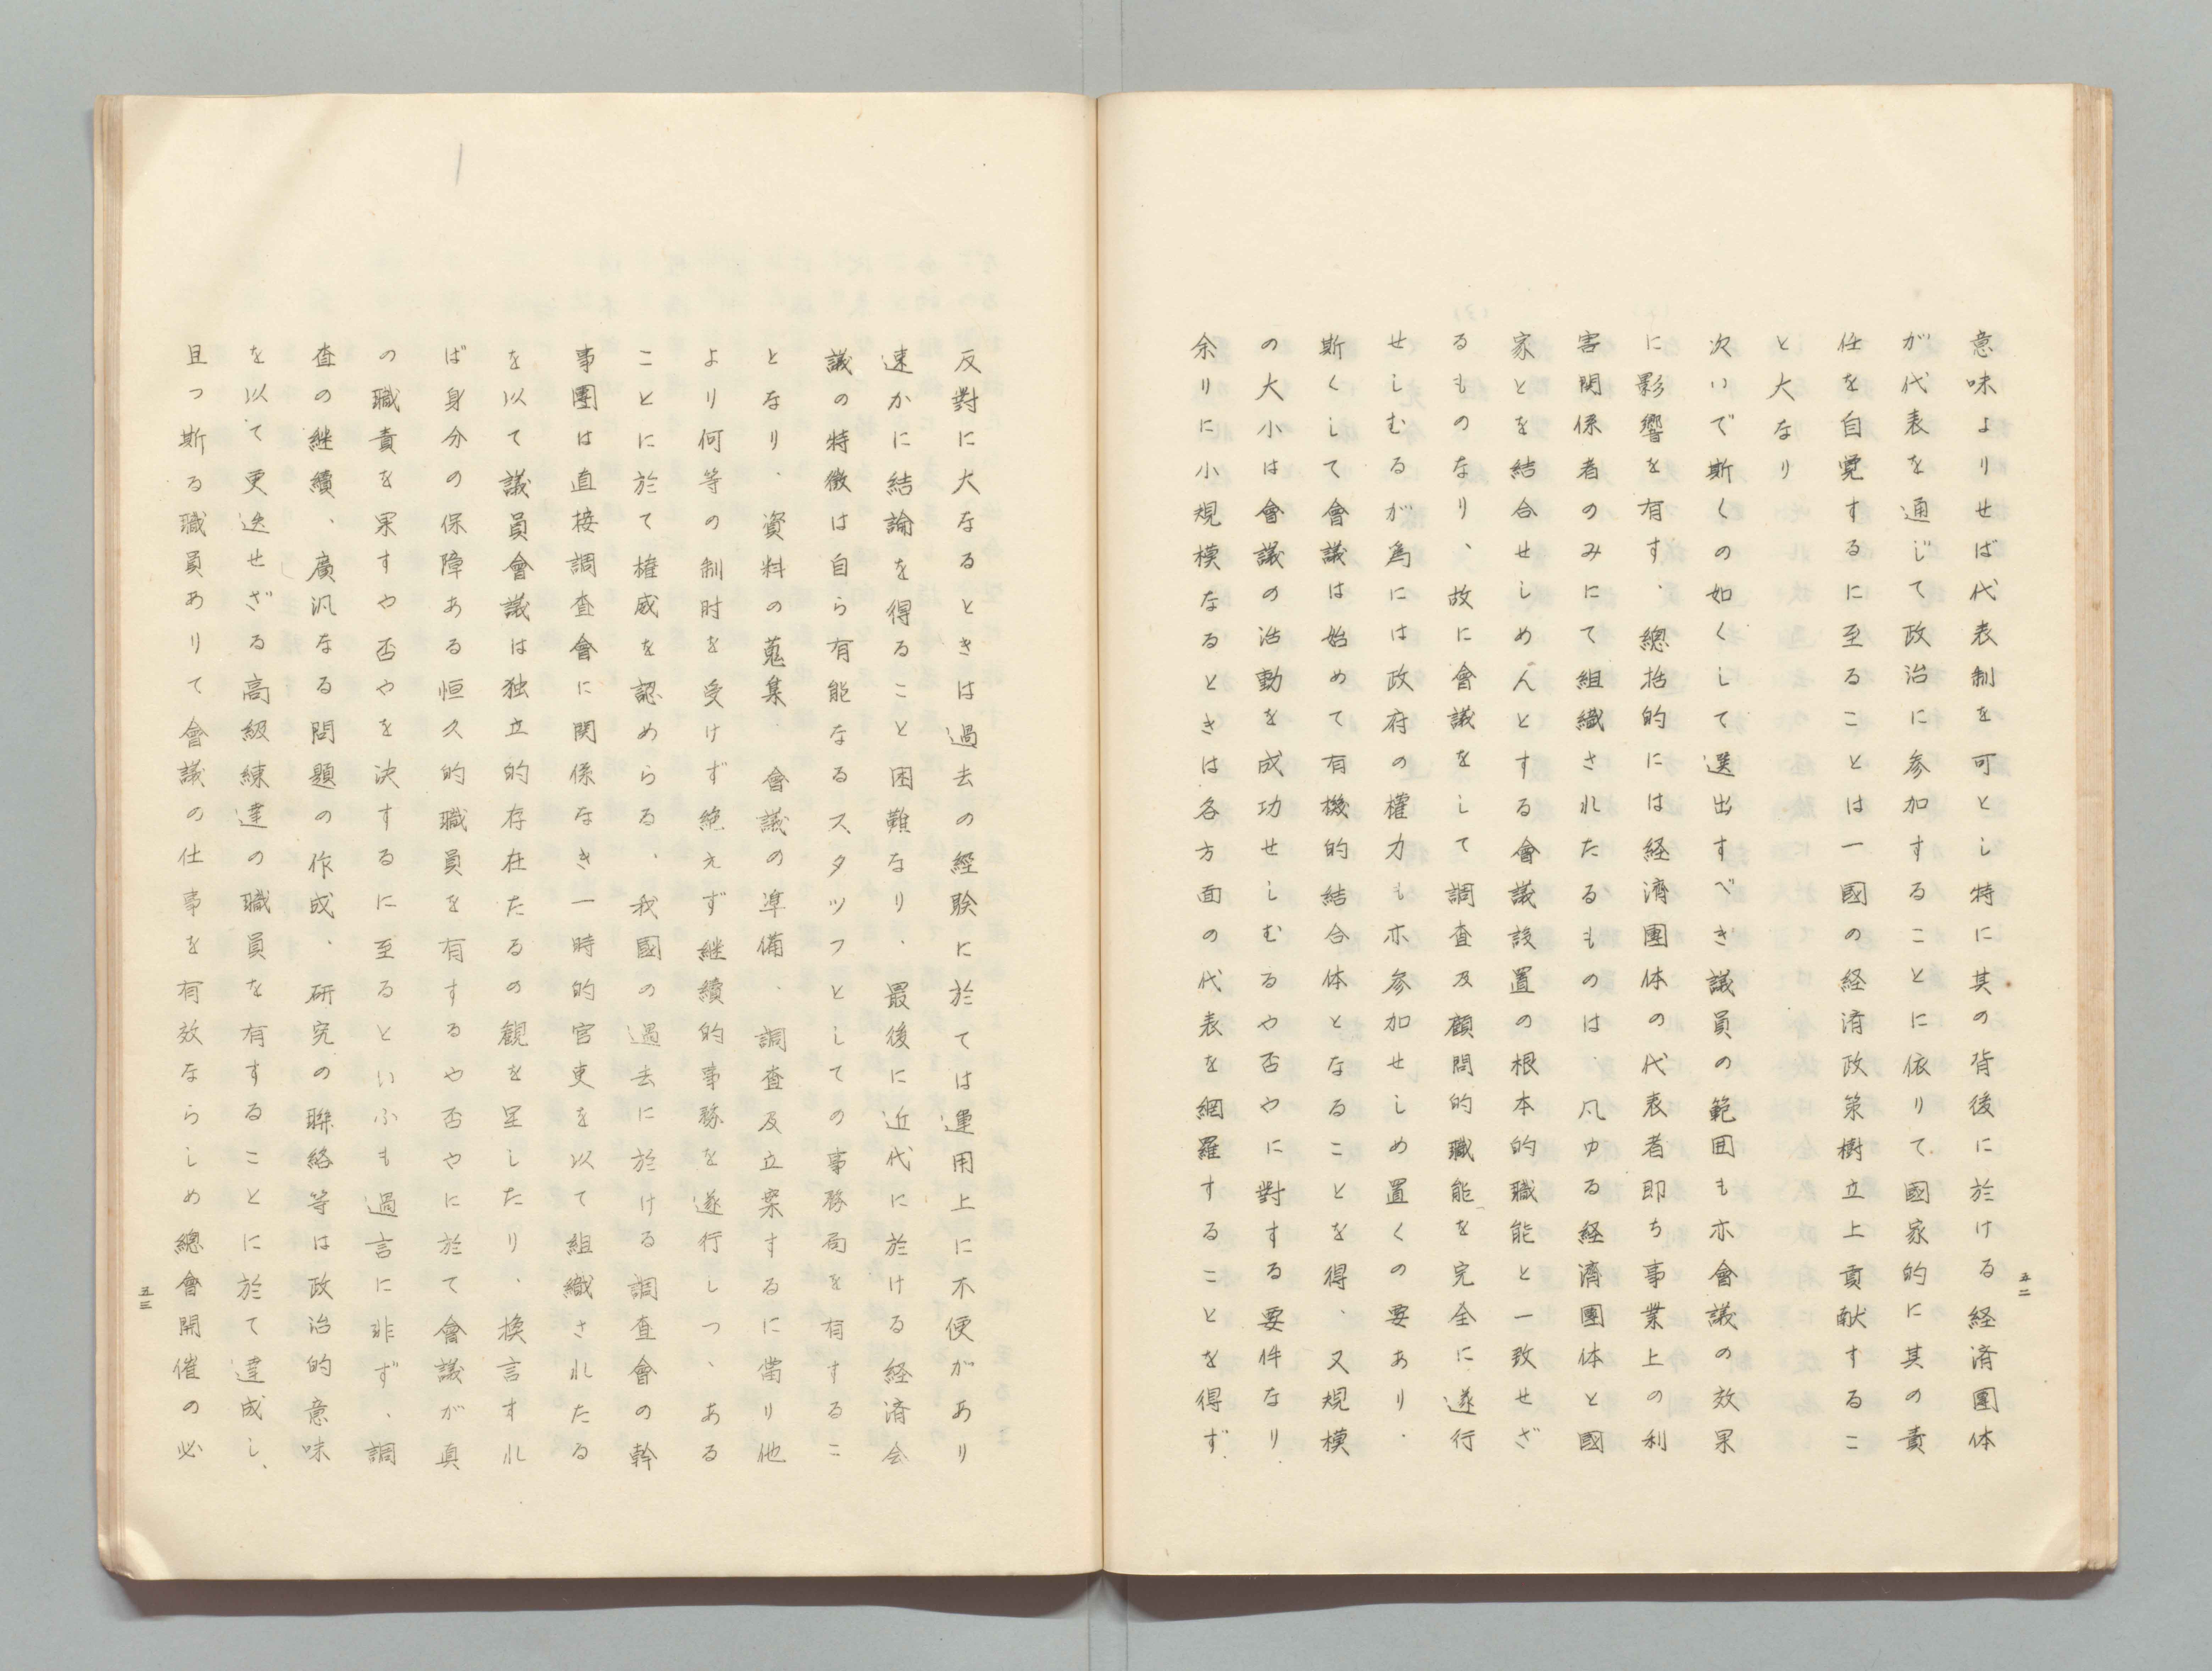 意味よりせば代表制を可とし特に其の背後に於ける経済團体
が代表を通じて政治に参加することに依りて國家的に其の責
任を自覚するに至ることは一國の経済政策樹立上貢献するこ
と大なり
次いで斯くの如くして選出すべき議員の範囲も亦會議の效果
に影響を有す、總括的には経濟團体の代表者即ち事業上の利
害関係者のみにて組織されたるものは、凡ゆる経濟團体と國
家とを結合せしめんとする會議設置の根本的職能と一致せざ
るものなり、故に會議をして調査及顧問的職能を完全に遂行
せしむるが爲には政府の權力も亦参加せしめ置くの要あり、
斯くして會議は始めて有機的結合体となることを得、又規模
の大小は會議の活動を成功せしむるや否やに對する要件なり
余りに小規模なるときは各方面の代表を網羅することを得ず
五二
反對に大なるときは過去の経驗に於ては運用上に不便があり
速かに結論を得ること困難なり、最後に近代に於ける経済会
議の特徴は自ら有能なるスタッフとしての事務局を有するこ
となり、資料の蒐集、會議の準備、調査及立案するに當り他
より何等の制肘を受けず絶えず継續的事務を遂行しつゝある
ことに於て権威を認めらる、我國の過去に於ける調査會の幹
事團は直接調査會に関係なき一時的官吏を以て組織されたる
を以て議員會議は独立的存在たるの観を呈したり、換言すれ
ば身分の保障ある恒久的職員を有するや否やに於て會議が真
の職責を果すや否やを決するに至るといふも過言に非ず、調
査の継續、廣汎なる問題の作成、研究の聯絡等は政治的意味
を以て更迭せざる高級練達の職員を有することに於て達成し、
且つ斯る職員ありて會議の仕事を有效ならしめ總會開催の必
五三